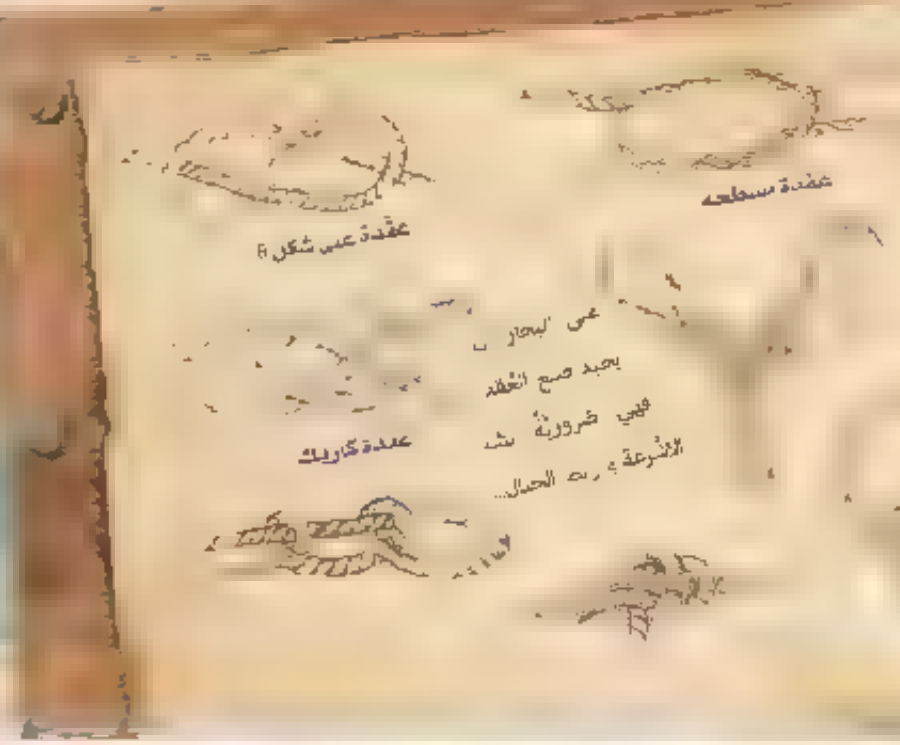 عقدة مسطحة
عقدة على شكل 8
على البحار
يجيد صنع العقد
فهي ضرورية
الأشرعة الحبال...
عقدة كاريك